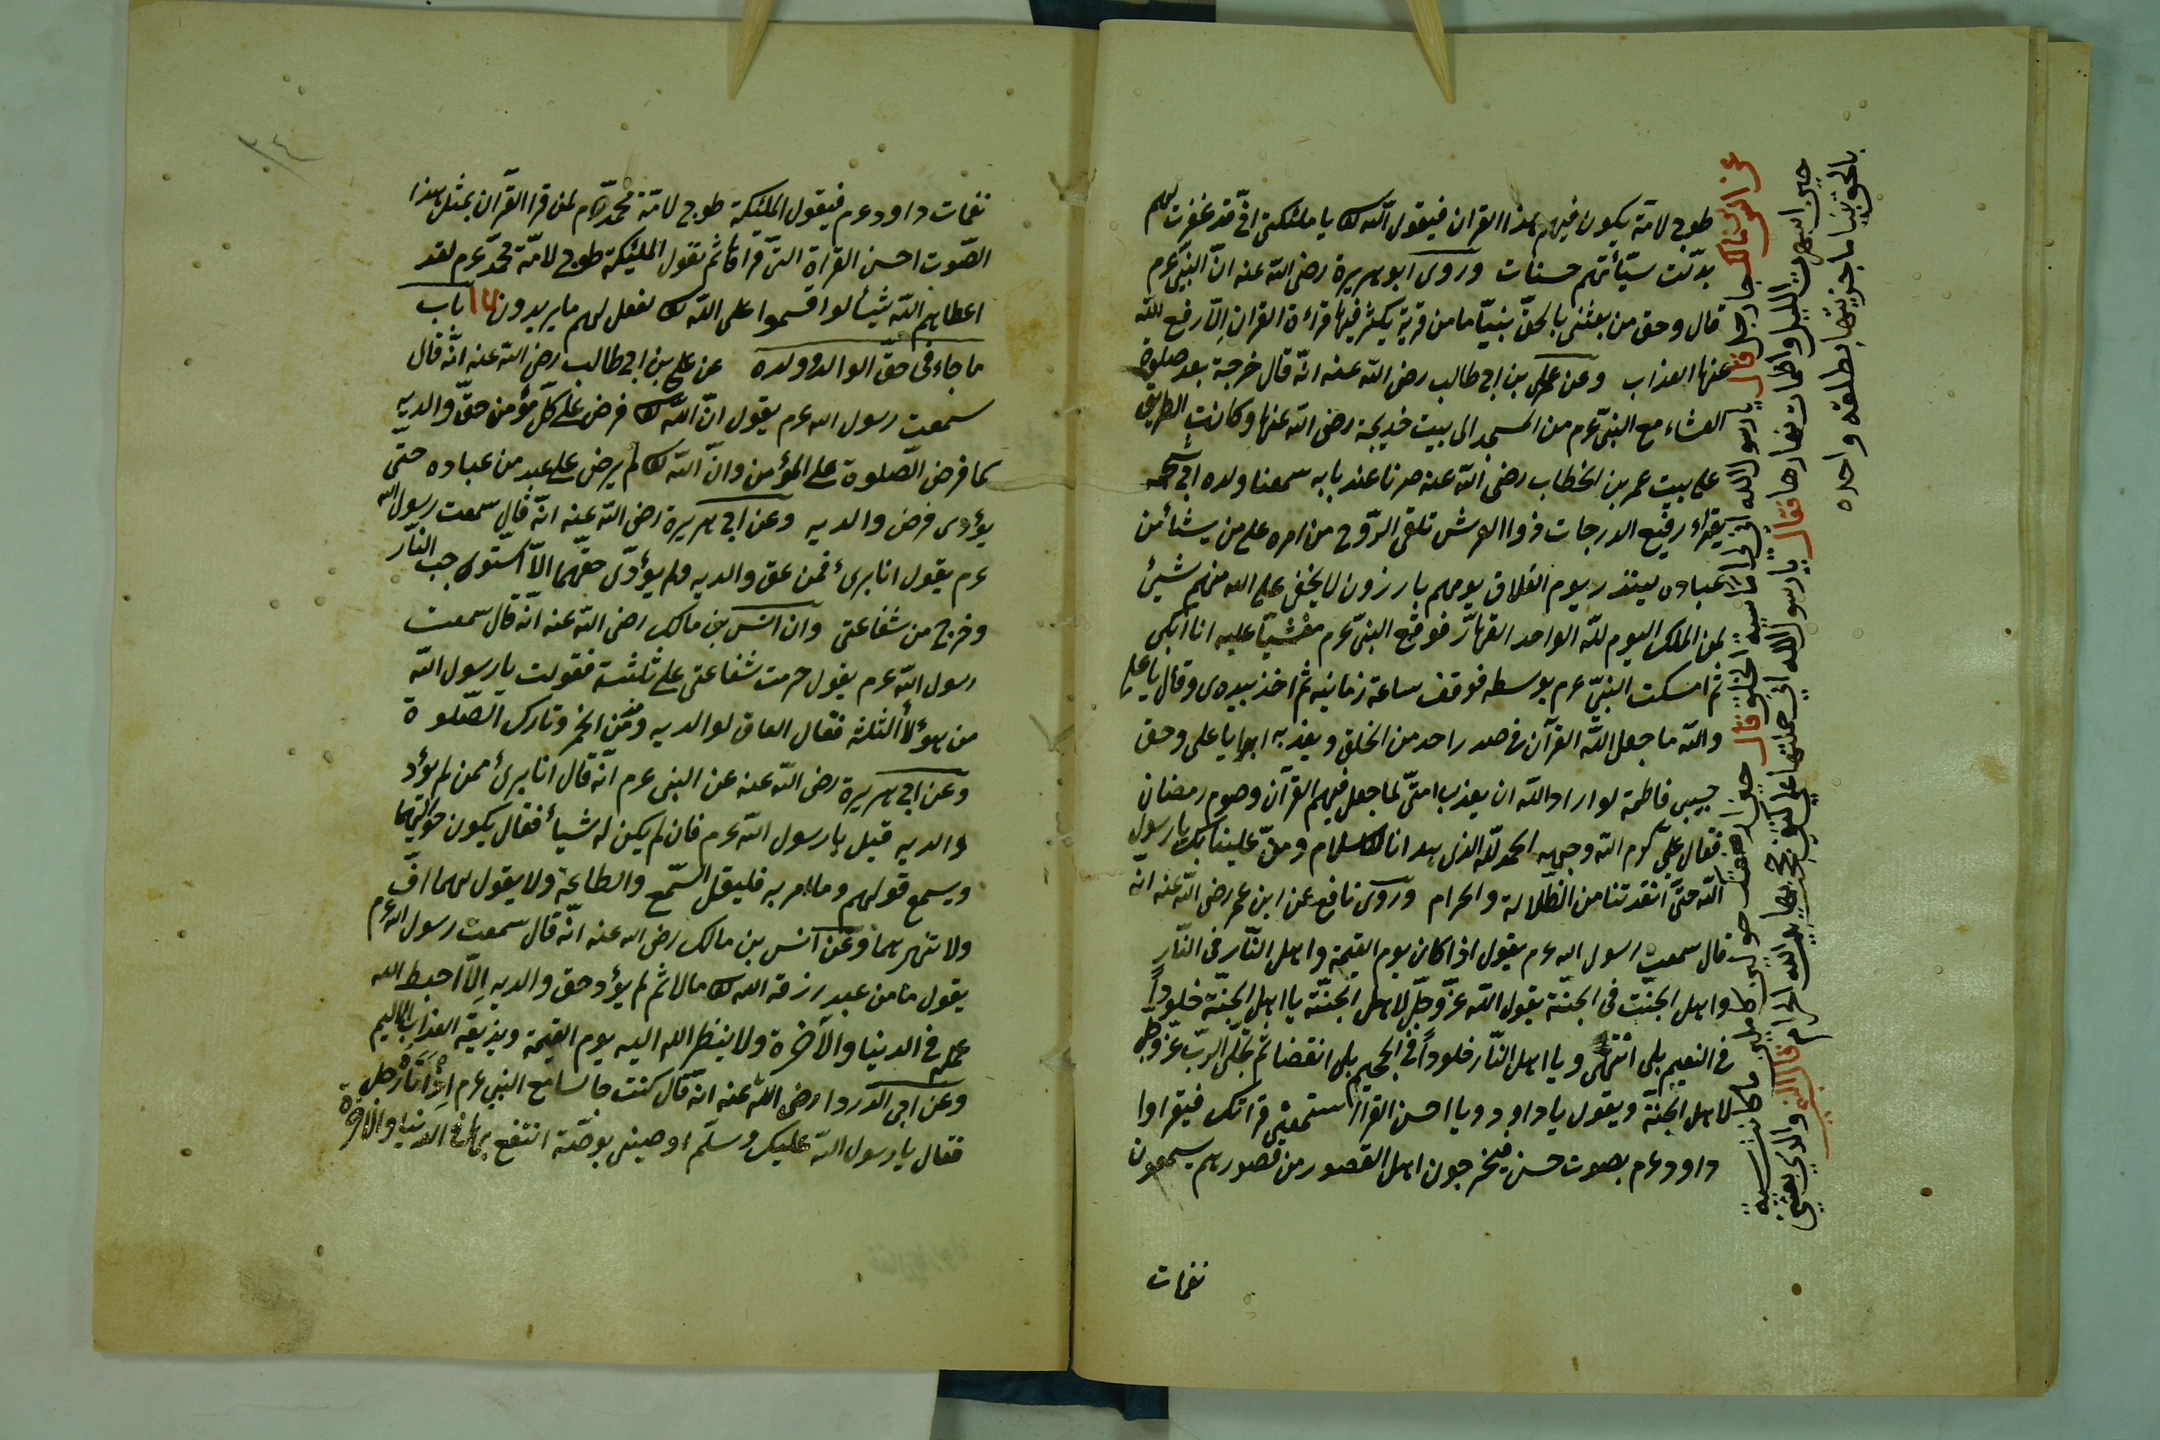 طوبى لامة يكون فيهم هذا القران فيقول الله تعالى يا ملئكتى انى قد غفرت لهم
بدّلت سيّأتهم حسنات وروى ابو هريرة رضى الله عنه انّ النبى عرم
قال وحق من بعثنى بالحقّ نبيّا ما من قرية يكثر فيها قراءة القران الّا رفع الله
عنها العذاب وعن على بن ابى طالب رضى الله عنه انّه قال خرجة بعد صلوة
العشاء مع النبىّ عرم من المسجد الى بيت خديجة رضى الله عنها وكانت الطريق
على بيت عمر بن الخطاب رضى الله عنه مرنا عند بابه سمعنا ولده
يقراء رفيع الدرجات ذوا العرش تلقى الرّوح من امره على من يشائمن
عباده لينذر يوم التلاق يومهم بارزون لا يخفى على الله منهم شيئ
لمن الملك اليوم للّه الواحد القهارّ فوقع النبىّ عرم مغشيّا عليه انا ابكى
ثم امسكت النبىّ عرم بوسطه فوقف ساعة زمانيه ثم اخذ بيدى وقال يا على
والله ما جعل اللّه القرآن فى صدر احد من الخلق ويعذبه ابدا يا على وحق
حبيبى فاطمة لو اراد اللّه ان يعذب امتىّ لما جعل فيهم القرآن وصوم رمضان
فقال علىّ كرم اللّه وجهه الحمد للّه الذى هدانا للاسلام ومنّ علينا بك يا رسول
اللّه حتّى انقدتنا من الظّلالة والحرام وروى نافع عن ابن عمر رضى اللّه عنه انّه
قال سمعت رسول الله عرم يقول اذا كان يوم القيمة واهل النّار فى النّار
واهل الجنّت فى الجنّة يقول اللّه عزّ وجلّ لاهل الجنّة يا اهل الجنّة خلوداً
فى النعيم بلى انتهى ويا اهل النّار خلوداً فى الجحيم بلى انقضا ثم تجلّى الربّ عزّ وجلّ
لاهل الجنّة ويقول يا داود ويا احسن القرأ استمعتى قراتك فيقراوا
داود عرم بصوت حسن فيخرجون اهل القصور من قصورهم يسمعون
نغمات
عن انس بن مالك جا رجل قال يا رسول الله
حين اسهرت الليل واظمات نهارها فقال يا رسول الله انى حملتها على كتفى حج بها بيت الله الحرام قال النبى والذى بعثنى
بالحق نبيا ما جزيتها بطلقة واحده
نغمات داود عرم فيقول الملئكة طوبى لامّة محمّد عرم لمن قرا القرآن بمثل هذا
الصّوت احسن القراة التى قراها ثم تقول الملئكة طوبى لامّة محمّد عرم لقد
اعطاهم اللّه شيئا لو اقسموا على اللّه تعالى لفعل لهم ما يريدون باب
ما جاء فى حقّ الوالد وولده عن على بن ابى طالب رضى اللّه عنه انّه قال
سمعت رسول الله عرم يقول انّ اللّه تعالى فرض على كلّ مؤمن حقّ والديه
كما فرض الصّلوة على المؤمن وانّ اللّه تعالى لم يرض على عبد من عباده حتّى
يؤدى فرض والديه وعن ابى هريرة رضى اللّه عنه انّه قال سمعت رسول الله
عرم يقول انا برئ فمن عق والديه ولم يؤدّى حقّهما الّا استوجب النّار
وخرج من شفاعتى وان انس بن مالك رضى اللّه عنه انّه قال سمعت
رسول اللّه عرم يقول حرمت شفاعتى على ثلثة فقولت يا رسول اللّه
من هؤلأ الثلثة فقال العاق لوالديه ومدمن الخمر وتارك الصّلوة
وعن ابى هريرة رضى اللّه عنه عن النبى عرم انّه قال انا برئ ممن لم يؤد
والديه قيل يا رسول اللّه عرم فان لم يكن له شيأ فقال يكون
ويسمع قولهم وما امر به فليقل السّمع والطاعة ولا يقول لهما افّ
ولا تنهرهما وعن انس بن مالك رضى الله عنه انّه قال سمعت رسول الله عرم
يقول ما من عبد رزقه الله تعالى مالا ثم لم يؤد حق والديه الّا احبط الله
عمله فى الدنيا والآخرة ولا ينظر الله اليه يوم القيمة ويذيقه العذاب الاليم
وعن ابى الدردا رضى اللّه عنه انّه قال كنت جالسا مع النبى عرم اذا اتاه رجل
فقال يا رسول اللّه عليك وسلّم اوصينى بوصّة انتفع بها فى الدنيا والاخرة